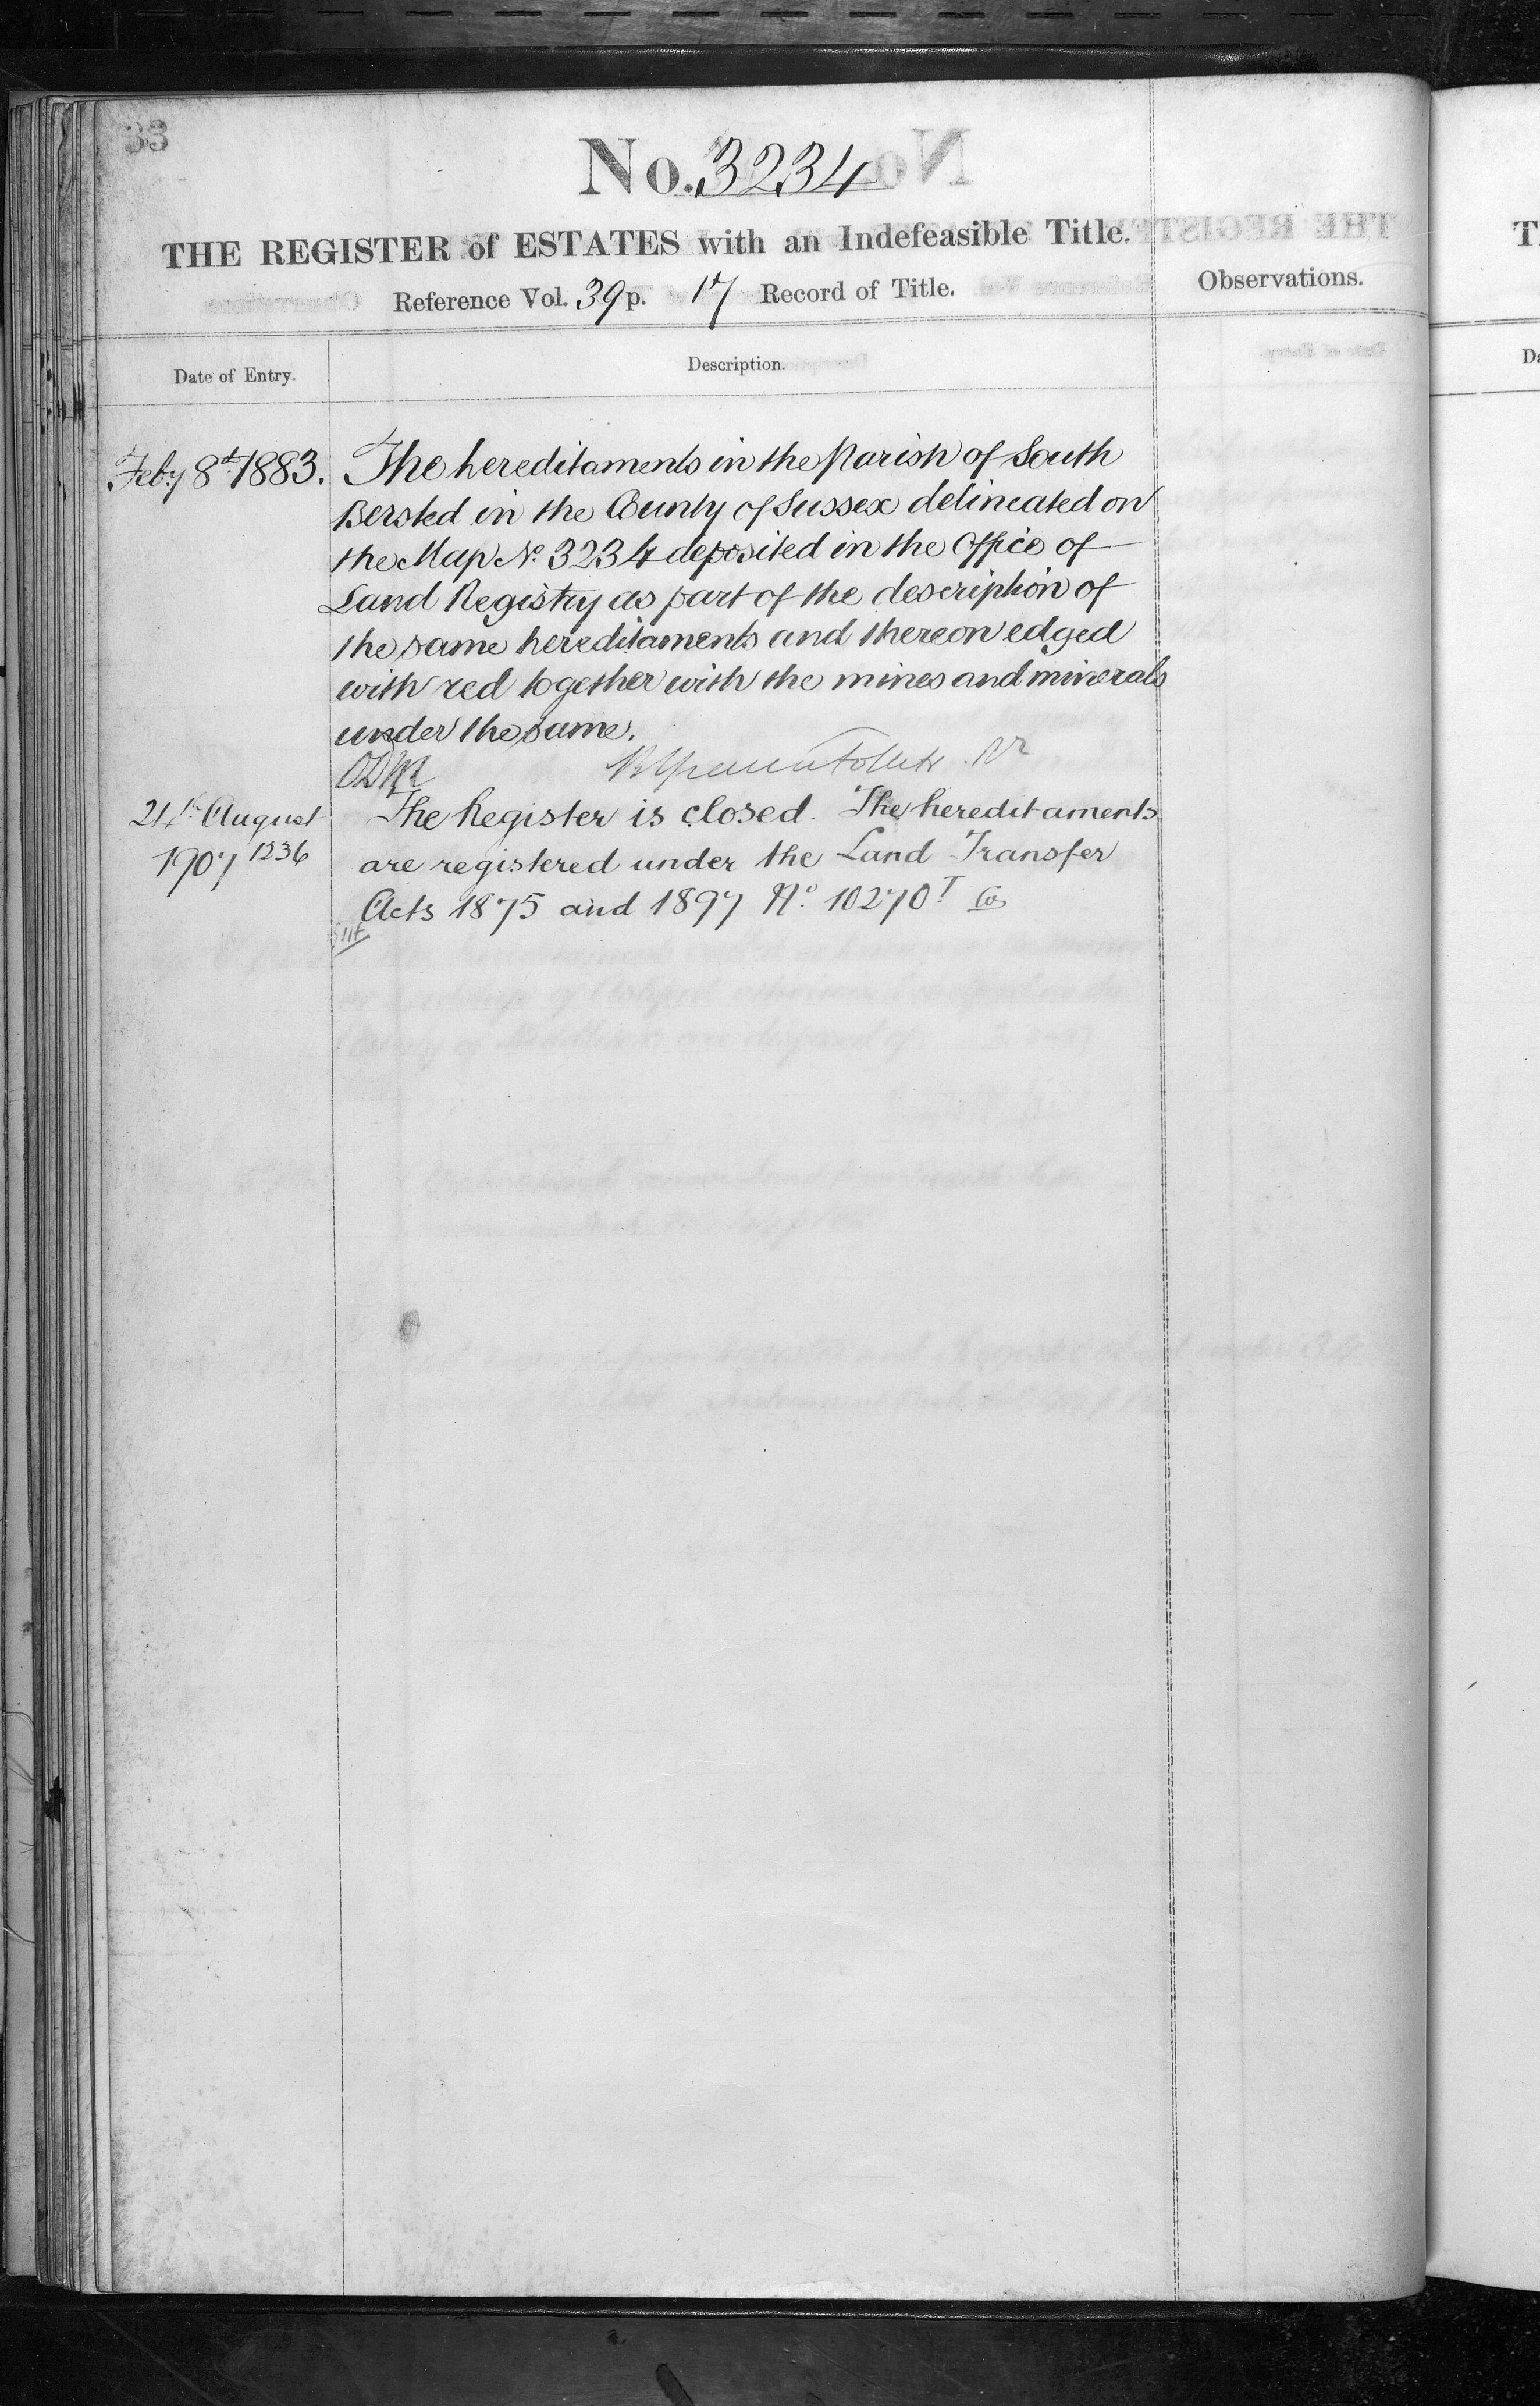 33
No. 3234
THE REGISTER of ESTATES with an Indefeasible Title.
Reference Vol. 39 p. 17 Record of Title.
Observations.
Date of Entry.
Description.
Feby 8th 1883.
The hereditaments in the Parish of South
Bersted in the County of Sussex delineated on
the Map No. 3234 deposited in the Office of
Land Registry as part of the description of
the same hereditaments and thereon edged
with red together with the mines and minerals
under the same.
21st August
1907 1236
The Register is closed. The hereditaments
are registered under the Land Transfer
Acts 1875 and 1897 No. 10270T